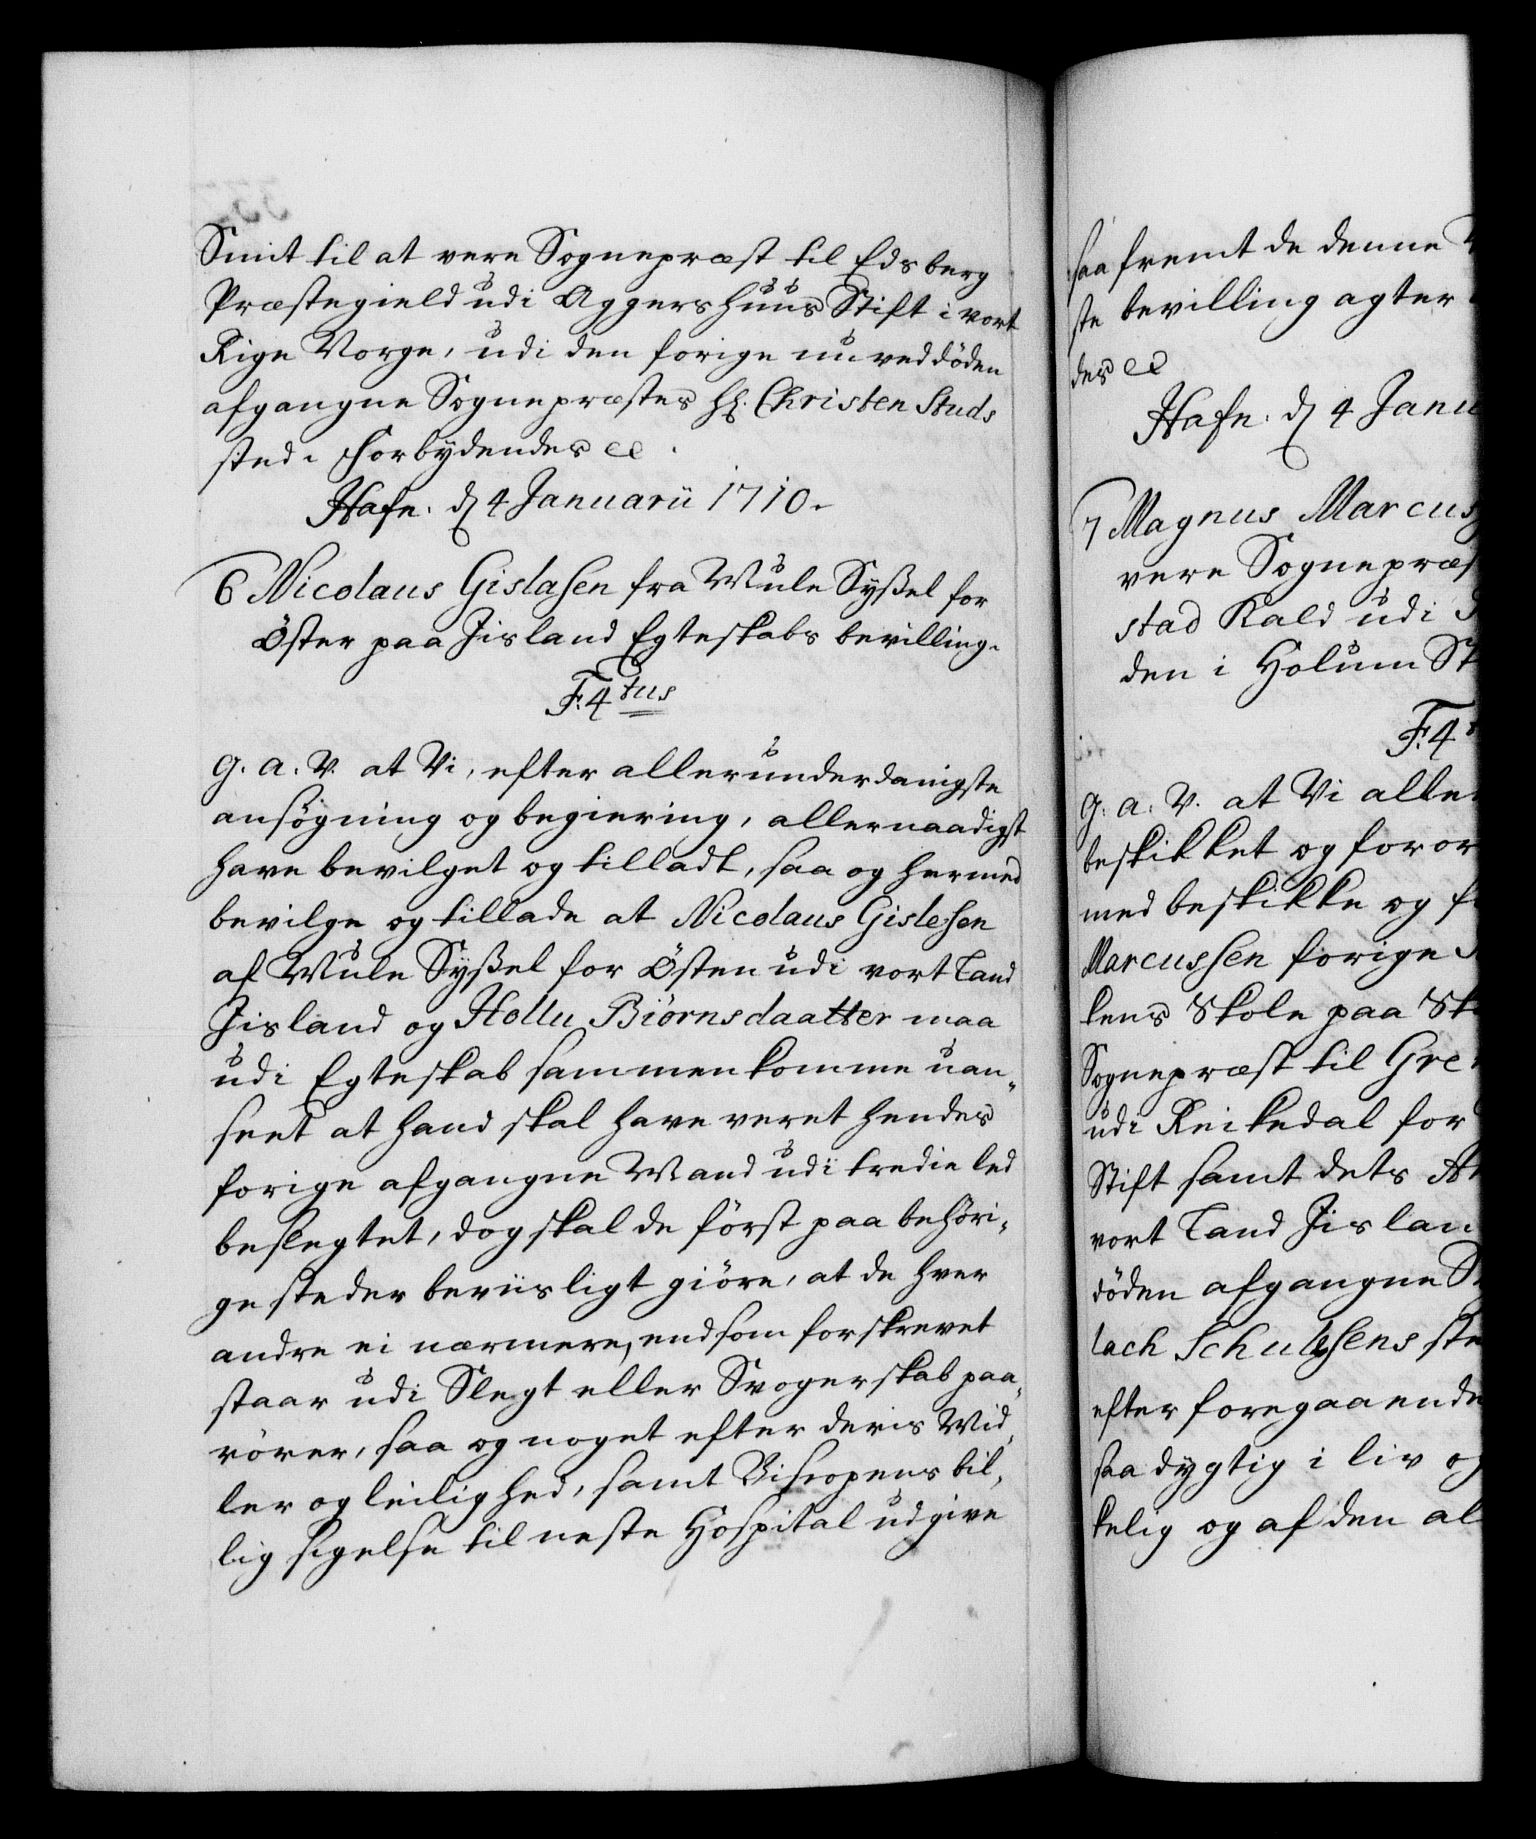 Smit til at vere Sognepræst til Edsberg
Præstegield udi Aggershuus Stift i vort
Rige Norge, udi den forige nu ved döden
afgangne Sognepræstes Hr. Christen Studs
sted. Forbydendes etc.
Hafn. d. 4 Januarii 1710.
6 Nicolaus Gislasen fra Mule Syssel for
Öster paa Jisland Egteskabs bevilling.
F. 4tus
G. A. V. at Vi, efter allerunderdanigste
ansøgning og begiering, allernaadigst
have bevilget og tilladt, saa og hermed
bevilge og tillade at Nicolaus Gislesen
af Mule Syssel for Östen udi vort Land
Jisland og Hollu Biörnsdaatter maa
udi Egteskab sammenkomme uan-
seet at hand skal have veret hendes
forige afgangne Mand udi tredie led
beslegtet, dog skal de först paa behöri-
ge steder beviisligt giöre, at de hver
andre ei nærmere, end som forskrevet
staar udi Slegt eller Svogerskab paa-
rörer, saa og noget efter deris Mid-
ler og leilighed, samt Bishopens bil-
lig sigelse til neste Hospital udgive
saa fremt de denne
ste bevilling agter
des etc
Hafn. d. 4 Janu
7 Magnus Marcus
vere Sognepræs
stad Kald udi
den i Holum St
F. 4
G. A. V. at Vi aller
beskikket og foror
med beskikke og f
Marcussen forige
kens Skole paa Sk
Sognepræst til Gre
udi Reikedal for
Stift samt dets
vort Land Jislan
döden afgangne S
lach Schulesens ste
efter foregaaende
saa dygtig i liv og
kelig og af den al